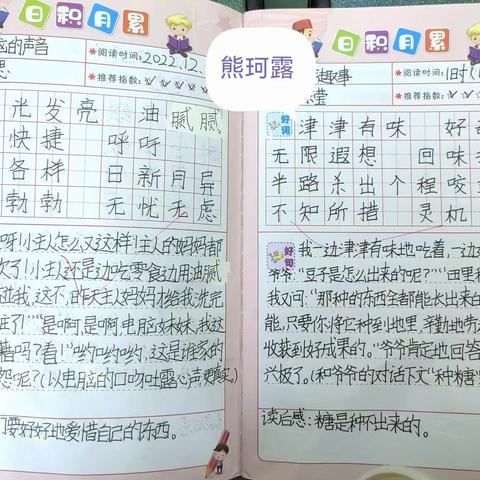 日积月累
脑的声音
思
阅读时间：2022.12.
推荐指数：
光发亮 油腻腻
快捷 呼呼
各样 日新月异
勃勃 无忧无虑
呀！小主人怎么又这样！主人的妈妈都
次了！小主人还是边吃零食边用油腻
碰我，这下，昨天主人妈妈才给我洗完
脏了！”“是啊，是啊，电脑妹妹，我这
着吗？看！”“哟哟哟，这是谁家的
怨呢？（以电脑的口吻吐露心声更真实）
要好好地爱惜自己的东西。
熊珂露
日积月累
趣事
莹
阅读时间：1时
推荐指数：
好词
津津有味 好
无限遐想 回味
半路杀出个程咬
不知所措 灵机
好句
我一边津津有味地吃着，一边
爷爷：“豆子是怎么出来的呢？”“田里
我又问：“那种的东西全都能长出来的
能，只要你将它种到地里，辛勤地劳
收获到好成果的。”爷爷肯定地回答
兴极了。（和爷爷的对话下文“种糖”
读后感：糖是种不出来的。